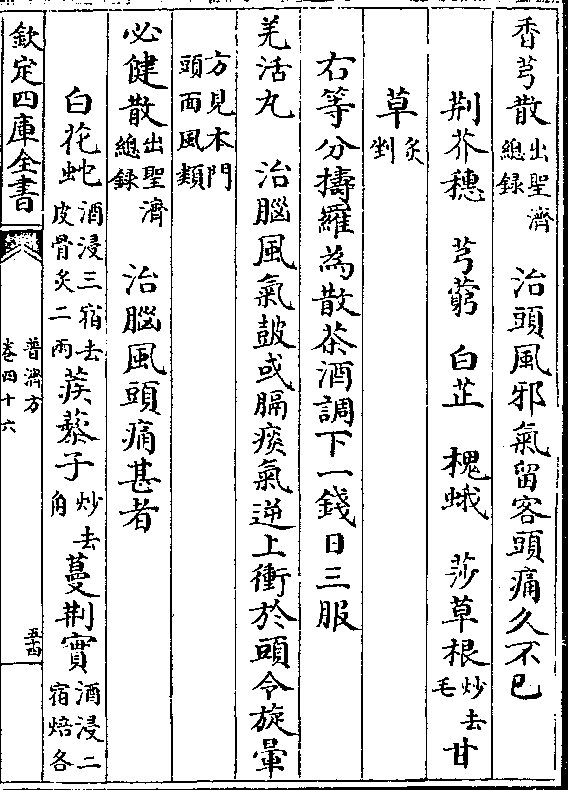 香芎散出聖濟總録 治頭風邪氣留客頭痛久不已
荆芥穗 芎藭 白芷 槐蛾 莎草根炒去毛 甘
草炙剉
右等分擣羅為散茶酒調下一錢日三服
羌活丸 治腦風氣皷或膈痰氣逆上衝於頭令旋暈
方見本門頭面風類
必健散出聖濟總録 治腦風頭痛甚者
白花蛇酒浸三宿去皮骨炙二兩 蒺藜子炒去角 蔓荆實酒浸二宿焙各
欽定四庫全書
普濟方
卷四十六
五十四